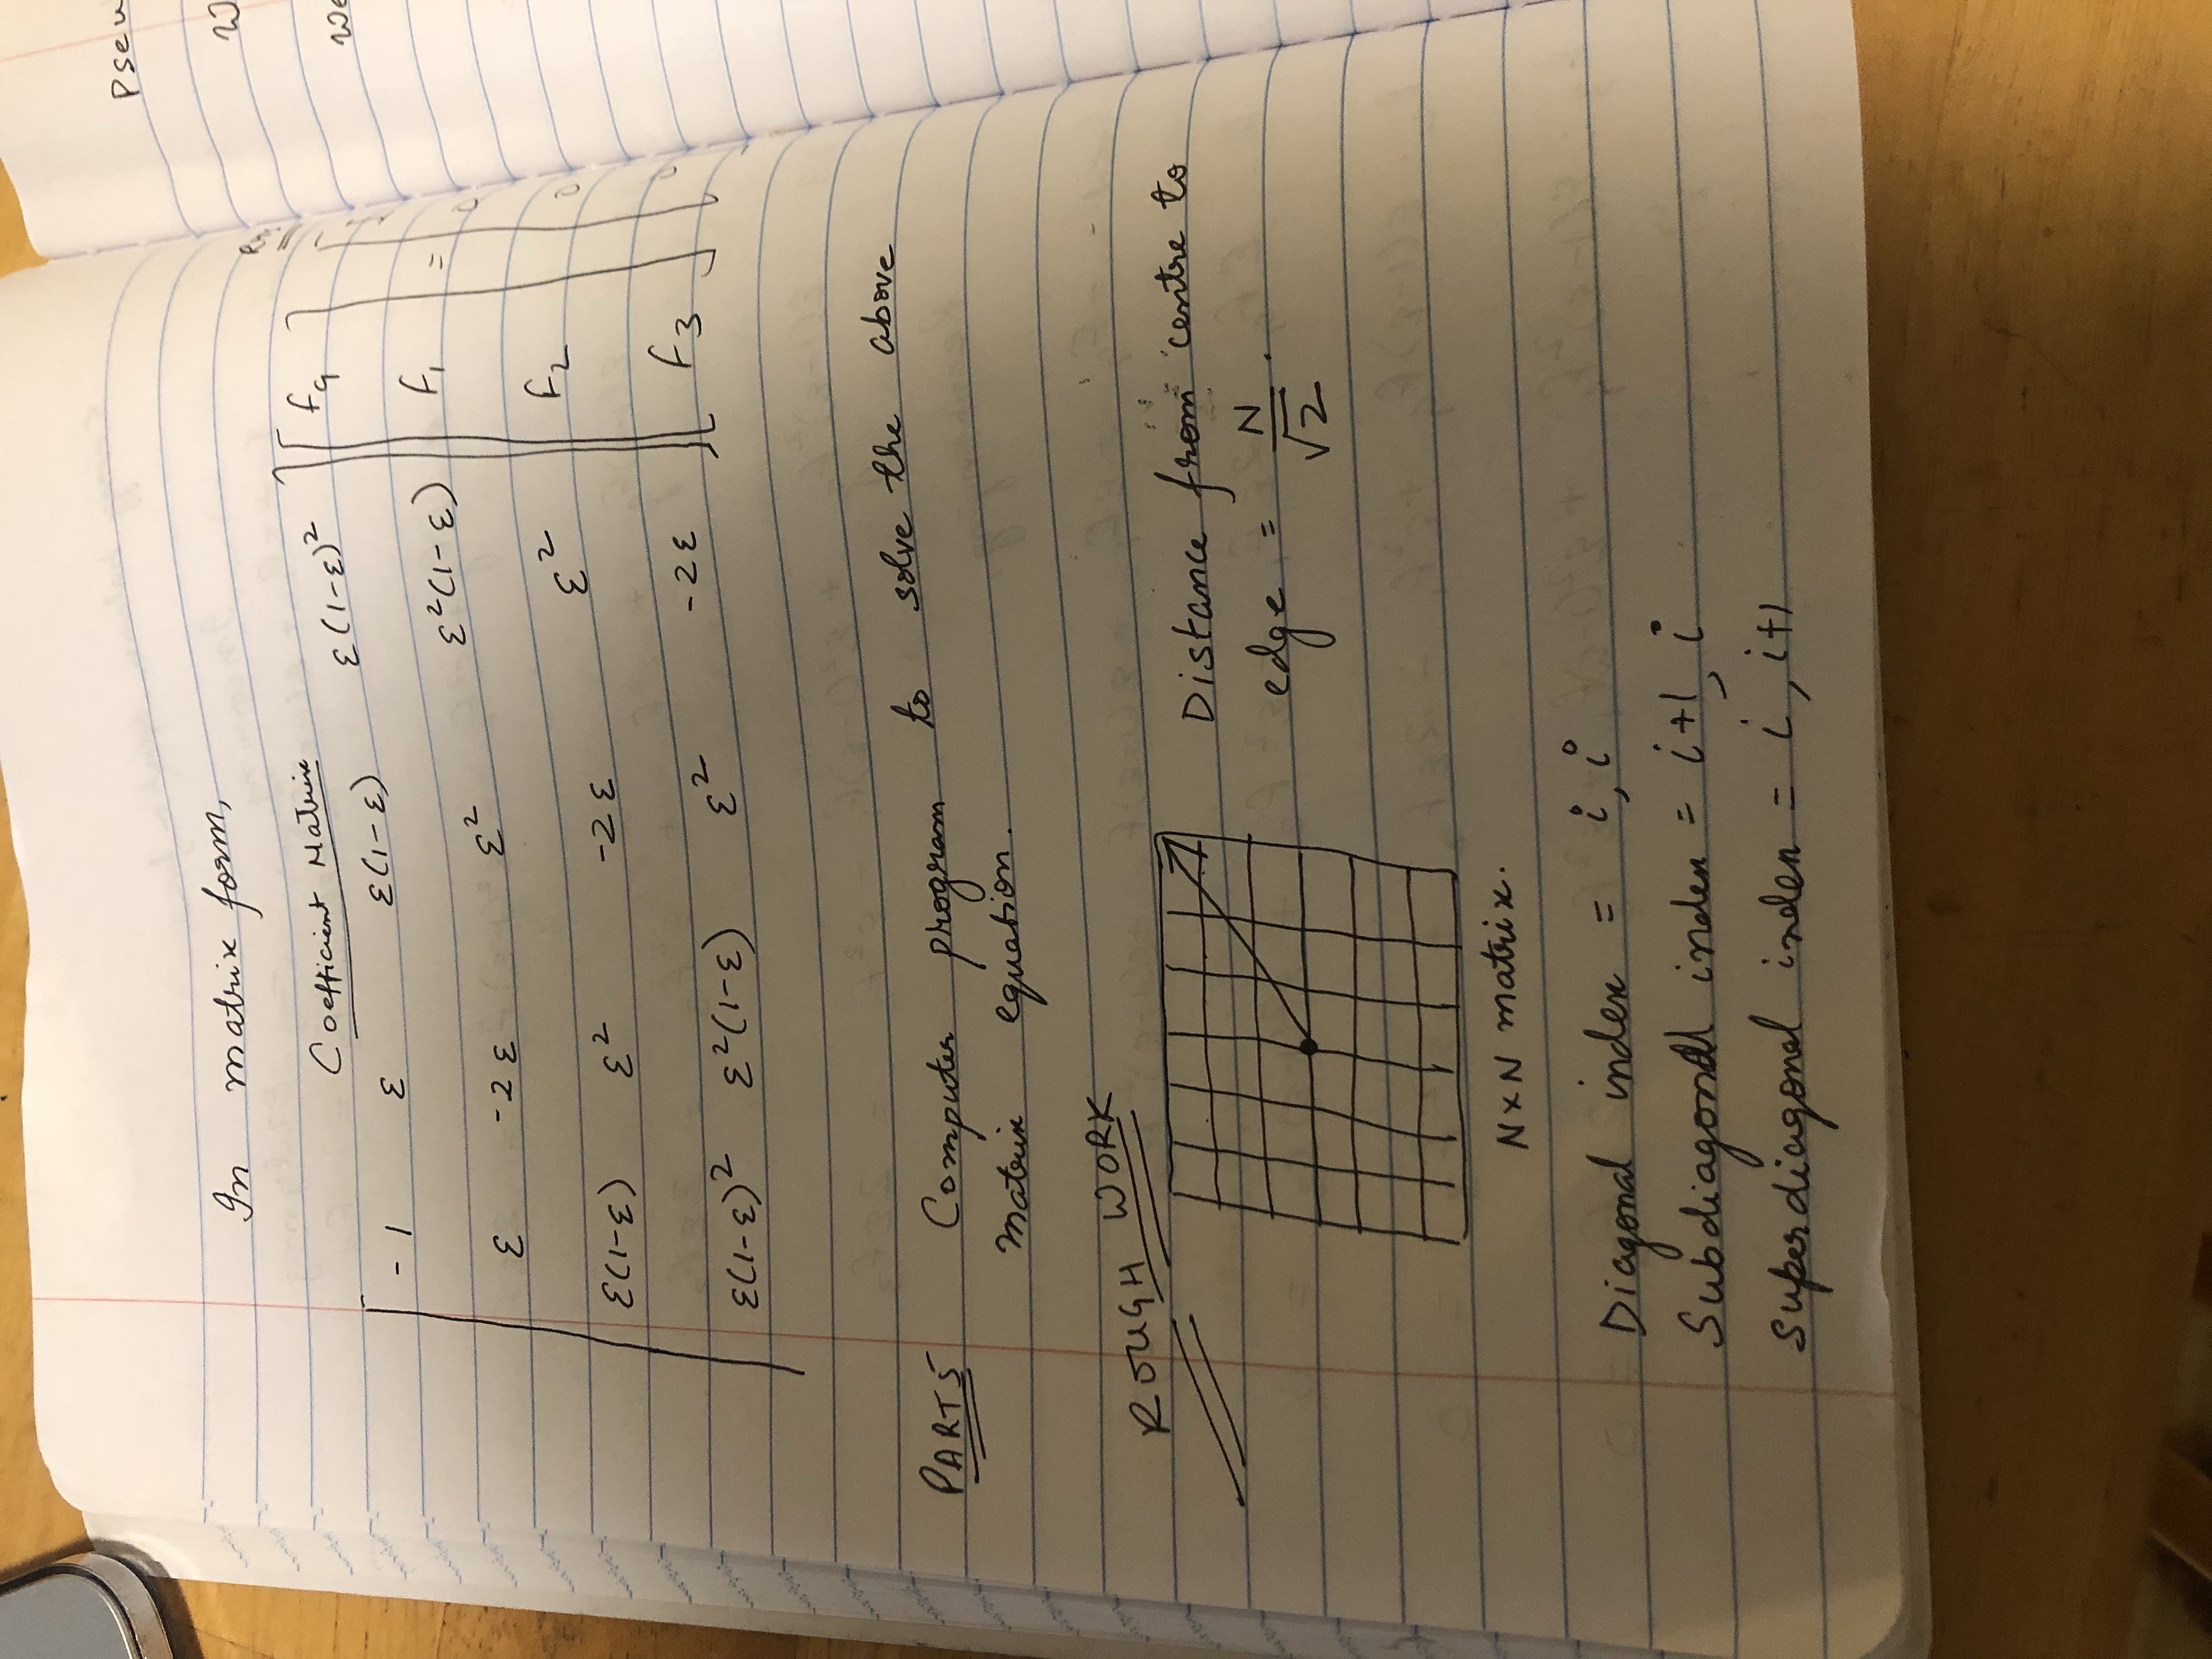 In matrix form,
Coefficient Matrix
-1 ε ε(1-ε) ε(1-ε)² f₉
ε -2ε ε² ε²(1-ε) f₁ =
ε(1-ε) ε² -2ε ε² f₂
ε(1-ε)² ε²(1-ε) ε² -2ε f₃
0
0
0
PART 5 Computer program to solve the above
matrix equation.
ROUGH WORK
Distance from centre to
edge = N/√2.
N×N matrix.
Diagonal index = i, i
Subdiagonal index = i+1, i
Superdiagonal index = i, i+1
Pseu
W
We